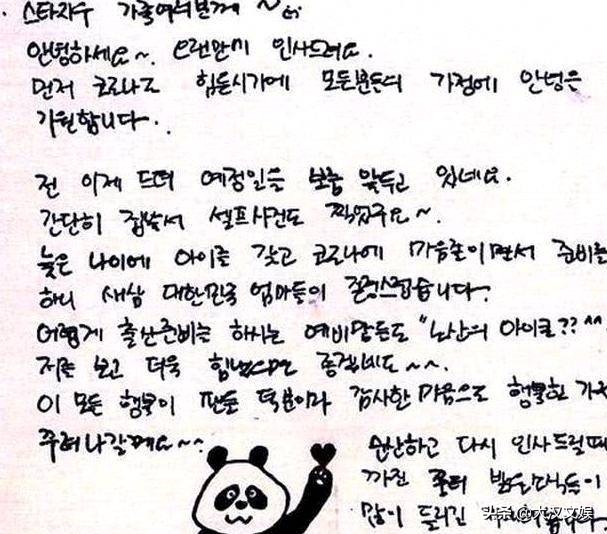 스타지우 가족여러분께 ~
안녕하세요~. 오랜만에 인사드려요.
먼저 코로나로 힘든시기에 모든분들의 가정에 안녕을
기원합니다.
전 이제 드뎌 예정일을 보름 앞두고 있네요.
간단히 집에서 셀프사진도 찍었구요~.
늦은 나이에 아이를 갖고 코로나에 마음졸이면서 준비를
하니 새삼 대한민국 엄마들이 존경스럽습니다.
어렵게 출산준비를 하시는 예비맘들도 "노산의 아이콘?? ^^
저를 보고 더욱 힘냈으면 좋겠네요~~.
이 모든 행복이 팬분 덕분이라 감사한 마음으로 행복한
꾸려나갈께요~~.
순산하고 다시 인사드릴때
까진 좋은 소식들이
많이 들리길
头条 @大汉文娱